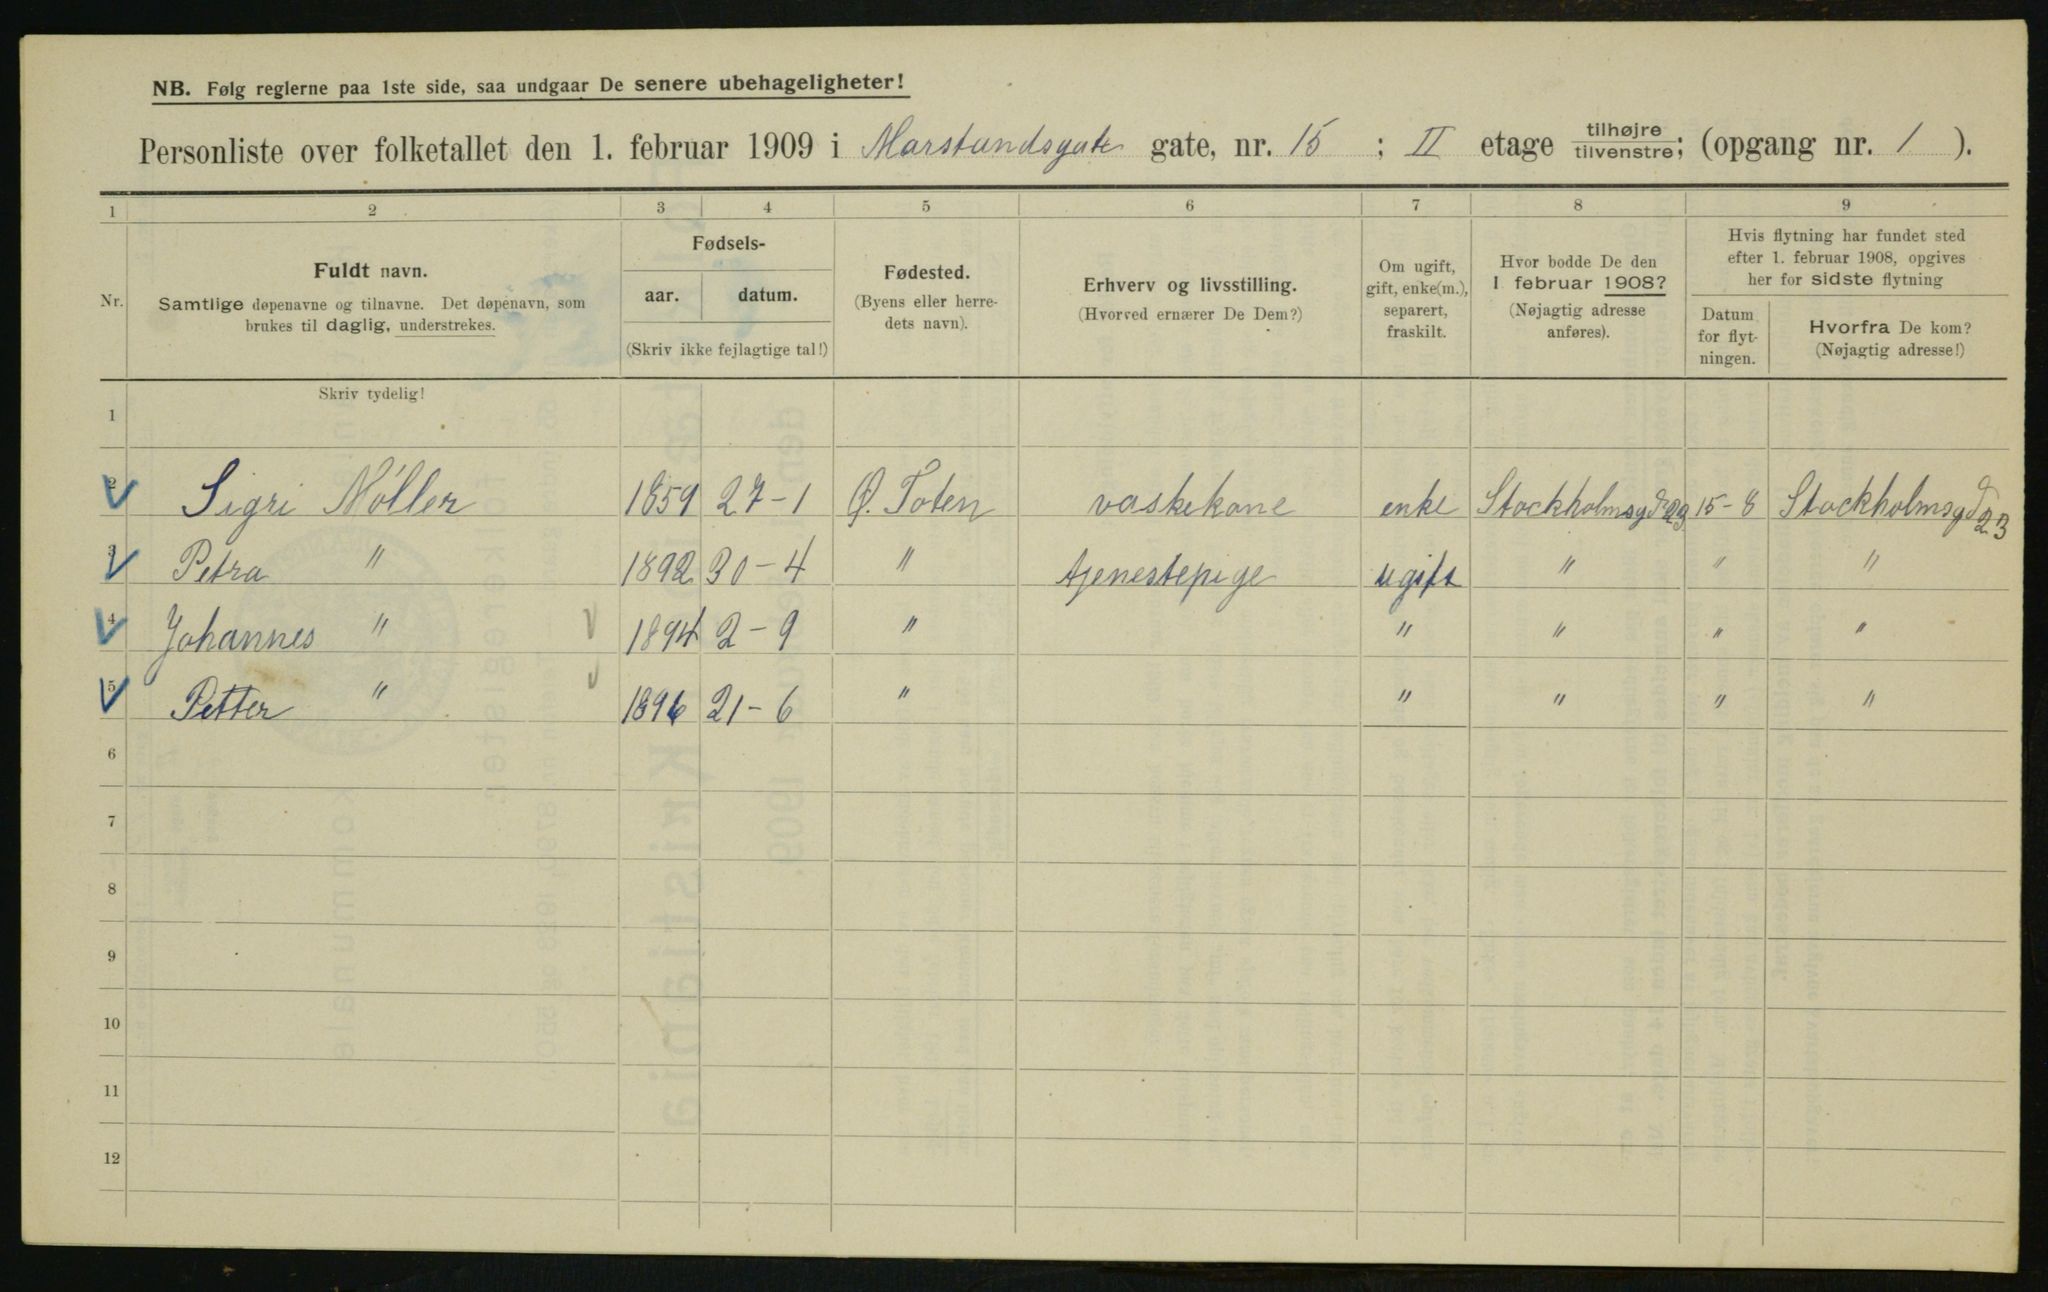 NB. Følg reglerne paa 1ste side, saa undgaar De senere ubehageligheter!
Personliste over folketallet den 1. februar 1909 i Marstrandsgate gate, nr. 15 ; II etage tilhøjre/tilvenstre; (opgang nr. 1 ).
1 2 3 4 5 6 7 8 9
Nr.
Fuldt navn.
Samtlige døpenavne og tilnavne. Det døpenavn, som
brukes til daglig, understrekes.
Fødsels-
aar. datum.
(Skriv ikke fejlagtige tal!)
Fødested.
(Byens eller herre-
dets navn).
Erhverv og livsstilling.
(Hvorved ernærer De Dem?)
Om ugift,
gift, enke(m.),
separert,
fraskilt.
Hvor bodde De den
1 februar 1908?
(Nøjagtig adresse
anføres).
Hvis flytning har fundet sted
efter 1. februar 1908, opgives
her for sidste flytning
Datum
for flyt-
ningen.
Hvorfra De kom?
(Nøjagtig adresse!)
Skriv tydelig!
1
2 Sigri Møller 1859 27-1 Ø. Toten vaskekone enke Stockholmsgd 23 15-8 Stockholmsgd 23
3 Petra " 1892 30-4 " tjenestepige ugift " " "
4 Johannes " 1894 2-9 " " " " "
5 Petter " 1896 21-6 " " " " "
6
7
8
9
10
11
12